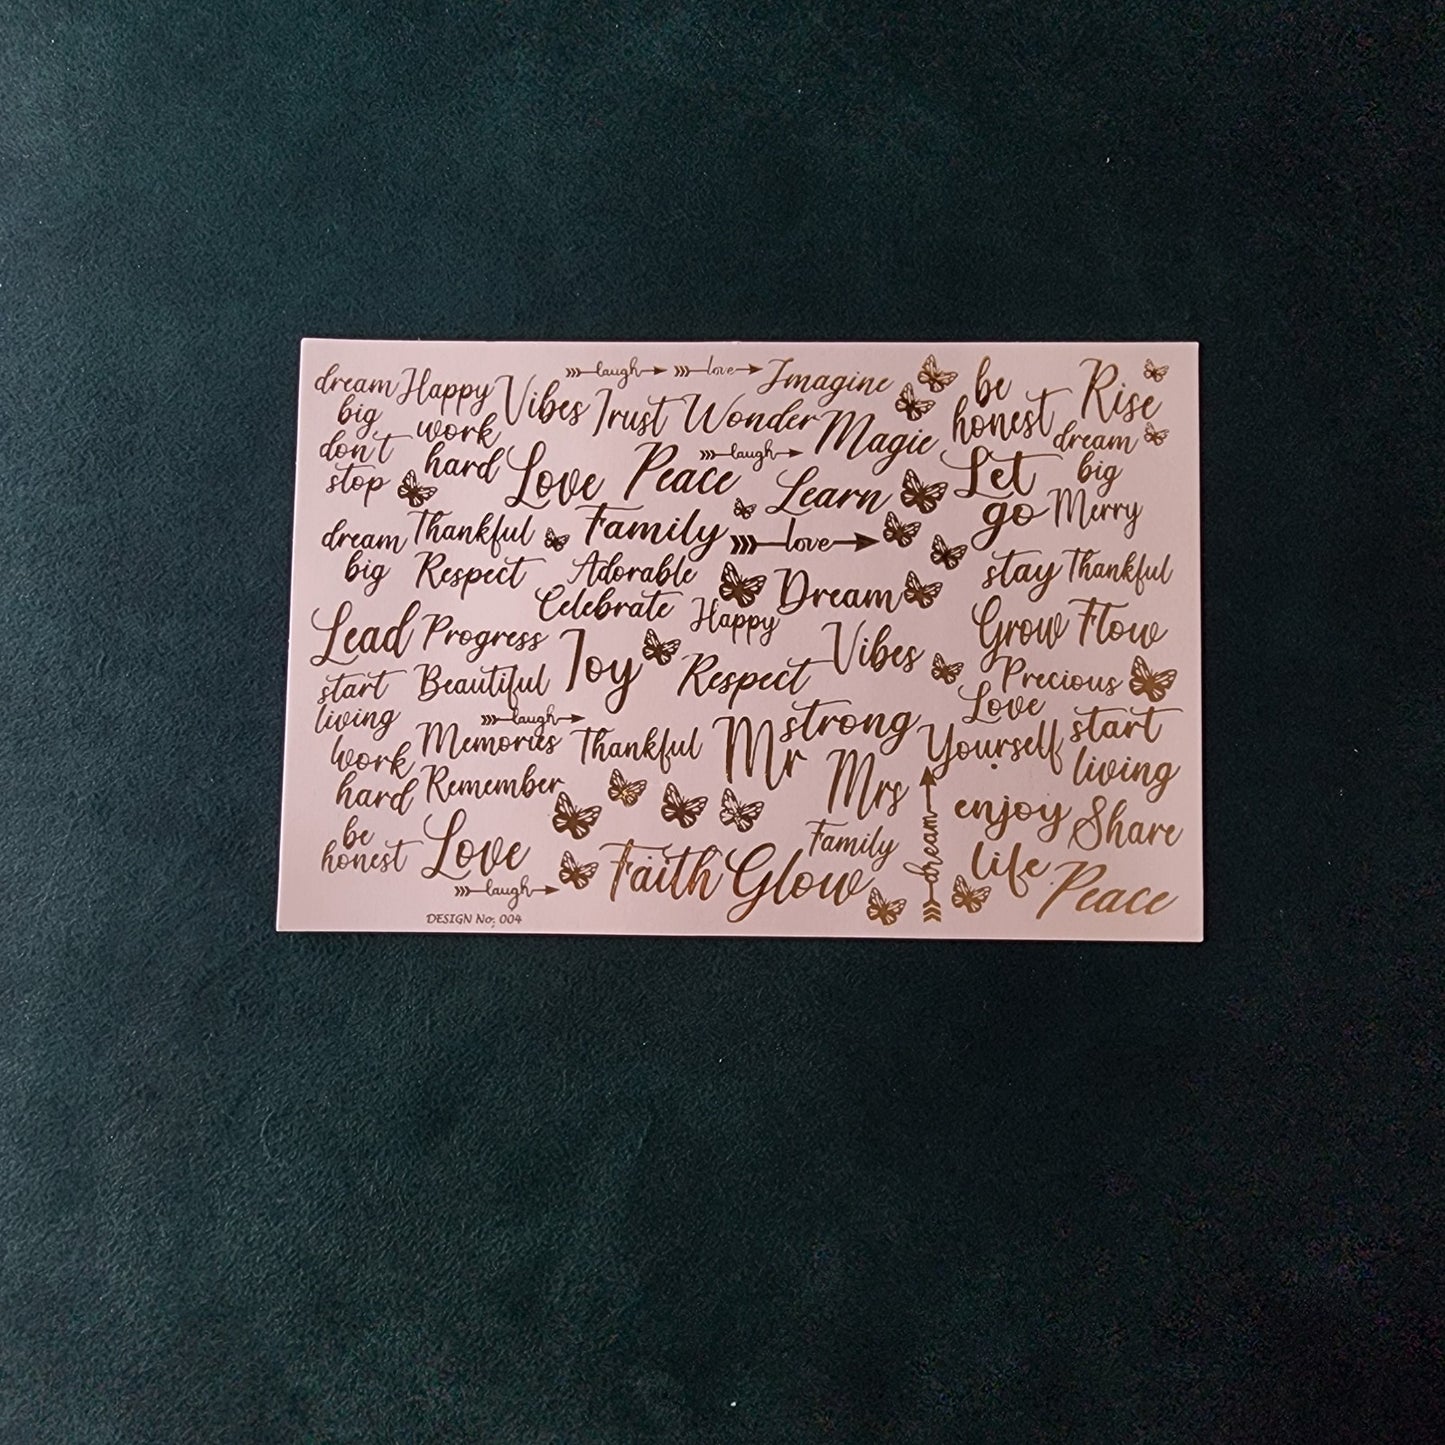 dream
big
Happy
Vibes
laugh
love
Imagine
be
honest
Rise
don't
stop
work
hard
Trust
Wonder
Magic
dream
big
Love
Peace
laugh
Learn
Let
go
Merry
dream
big
Thankful
Family
love
Respect
Adorable
Dream
stay
Thankful
Celebrate
Happy
Lead
Progress
Joy
Vibes
Grow
Flow
start
living
Beautiful
Respect
Precious
laugh
Memories
Thankful
Mr
strong
Love
Yourself
start
living
work
hard
Remember
Mrs
enjoy
life
Share
be
honest
Love
Family
dream
laugh
Faith
Glow
Peace
DESIGN No; 004